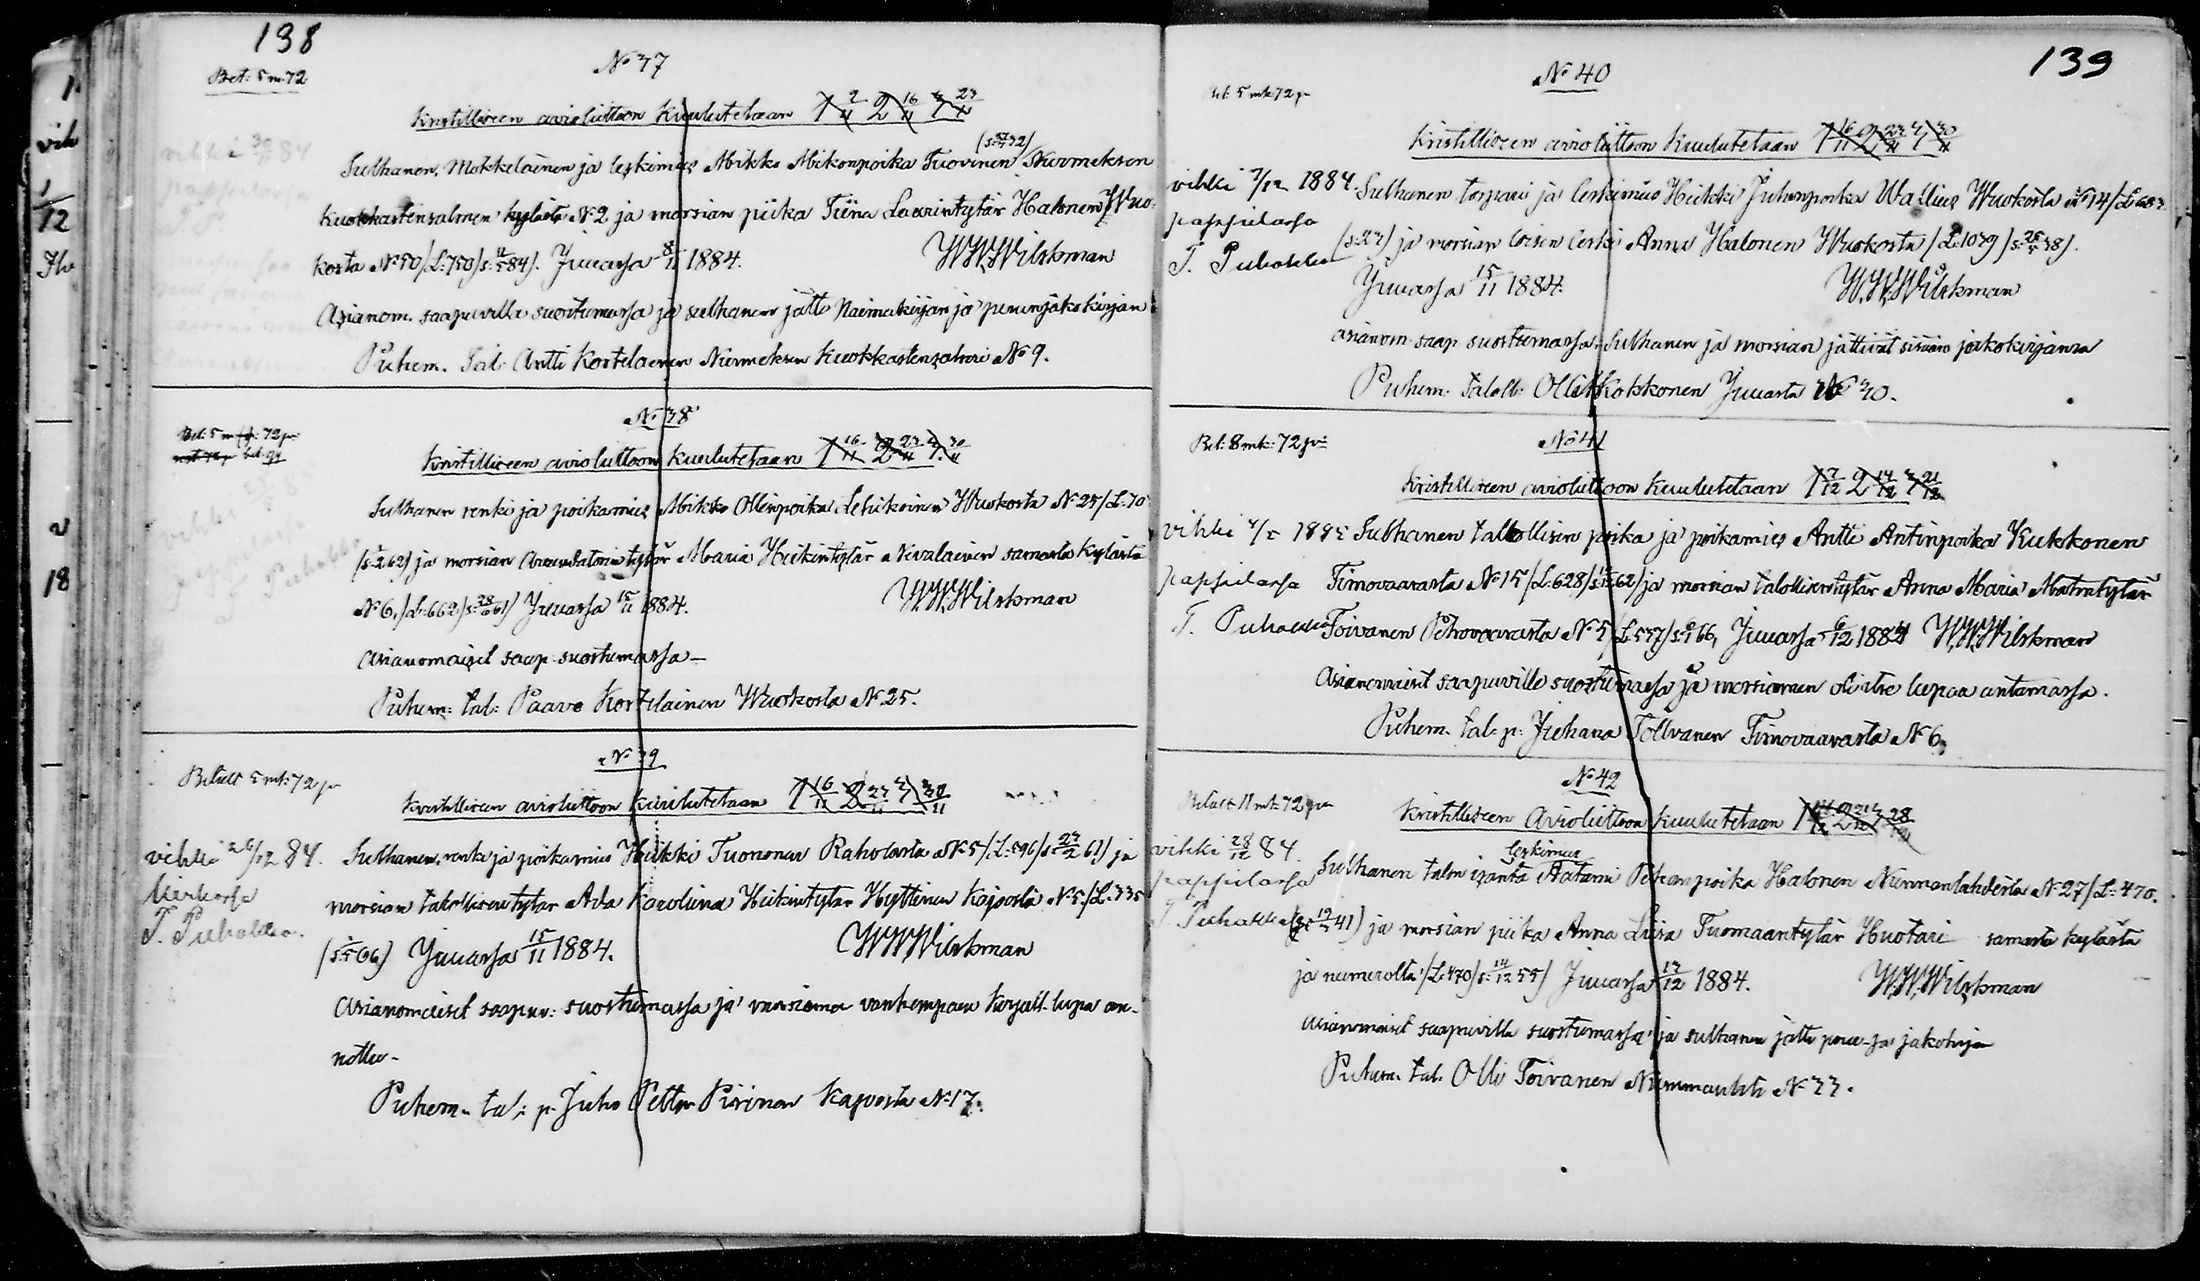 138
Bet: 5 m. 72
No 37
Kristilliseen avioliittoon Kuulutetaan 1 2/11 2 16/11 3 23/11
Sulhanen, Mökkeläinen ja leskimies Mikko Mikonpoika Tuovinen Nurmeksen
Kuokkastensalmen kylästä No 2 ja morsian piika Tiina Laurintytär Halonen Wuo-
kosta No 50 /L: 750/ Juuassa 8/11 1884. WWWilskman
Asianom. saapuvilla suostumassa ja sulhanen jätti Naimakirjan ja perunjakokirjan
Puhem. Tal. Antti Kortelainen Nurmeksen Kuokkastensalmi No 9.
vihki 30/11 84
pappilassa
No 38
Bet: 5 m: 72 p:
Kristilliseen avioliittoon Kuulutetaan 1 16/11 2 23/11 3 30/11
Sulhanen renki ja poikamies Mikko Ollinpoika Lehikoinen Wuokosta No 25 /L: 70
ja morsian tytär Maria Heikintytär Nivalainen samasta Kylästä
No 6, /L: 662/ s: 28/10 61/ Juuassa 15/11 1884. WWWilskman
Asianomaiset saap. suostumassa —
Puhem: tal: Paavo Kortelainen Wuokosta No 25.
No 39
Betalt 5 mk: 72 p
Kristilliseen avioliittoon Kuulutetaan 1 16/11 2 23/11 3 30/11
vihki 26/12 84.
T. Puhakka.
Sulhanen, renki ja poikamies Heikki Tuononen Raholasta No 5 /L: 596/ s: 23/2 61) ja
morsian talollisentytär Ada Karolina Heikintytär Hyttinen Kajoosta No 5. /L. 335
Juuassa 15/11 1884. WWWilskman
Asianomaiset saapuv: suostumassa ja morsiamen vanhempain kirjall. lupa an-
nettu.
Puhem. tal: p. Juho Petter Piirinen Kajoosta No 17.
139
No 40
Bet: 5 mk 72 p
Kristilliseen avioliittoon Kuulutetaan 1 16/11 2 23/11 3 30/11
vihki 7/12 1884.
pappilassa
T. Puhakka
Sulhanen torppari ja leskimies Heikki Juhonpoika Wallius Wuokosta No 14
ja morsian loisen leski Anna Halonen Wuokosta /L: 1079/ s: 25/5 38).
Juuassa 15/11 1884. WWWilskman
asianom. saap. suostumassa. Sulhanen ja morsian jättivät sisään jakokirjansa
Puhem: taloll: Olli Kokkonen Juuasta No 30.
Bet: 8 mk: 72 p:
No 41
Kristilliseen avioliittoon Kuulutetaan 1 7/12 2 14/12 3 21/12
pappilassa
T. Puhakka
Sulhanen talollisen poika ja poikamies Antti Antinpoika Kukkonen
Timovaarasta No 15 /L: 628/ ja morsian talollisentytär Anna Maria Matintytär
Toivanen Petrovaarasta No 5 Juuassa 6/12 1884 WWWilskman
Asianomaiset saapuvilla suostumassa ja morsiamen oli itse lupaa antamassa.
Puhem. tal: p: Juhana Tolvanen Timovaarasta No 6,
No 42
Betalt 11 mk: 72 p
Kristilliseen Avioliittoon Kuulutetaan 1 14/12 2 21/12 3 28/12
vihki 28/12 84.
pappilassa
T. Puhakka
leskimies
Sulhanen talon isäntä Aatami Petterinpoika Halonen Nunnanlahdesta No 27 /L: 470.
ja morsian piika Anna Liisa Tuomaantytär Huotari samasta kylästä
ja numerolta /L: 470/ s: 14/12 55) Juuassa 13/12 1884. WWWilskman
Asianomaiset saapuvilla suostumassa ja sulhanen jätti peru- ja jakokirjan
Puhem. tal. Olli Toivanen No 33.